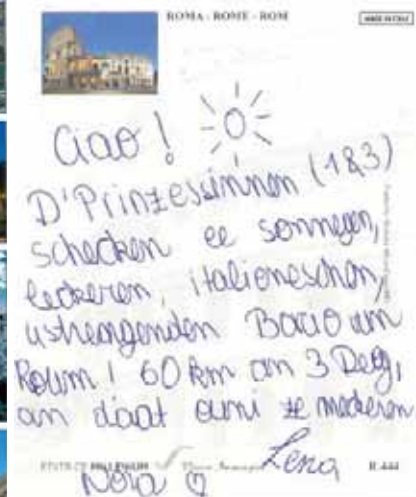 ROMA - ROME - ROM
MADE IN ITALY
Ciao!
D'Prinzessinnen (1&3)
schecken ee sonnegen,
leckeren, italieneschen,
ustrengenden Bacio um
Roum! 60 km an 3 Deeg,
an daat ouni ze mederen
Lena
Nora
R 444